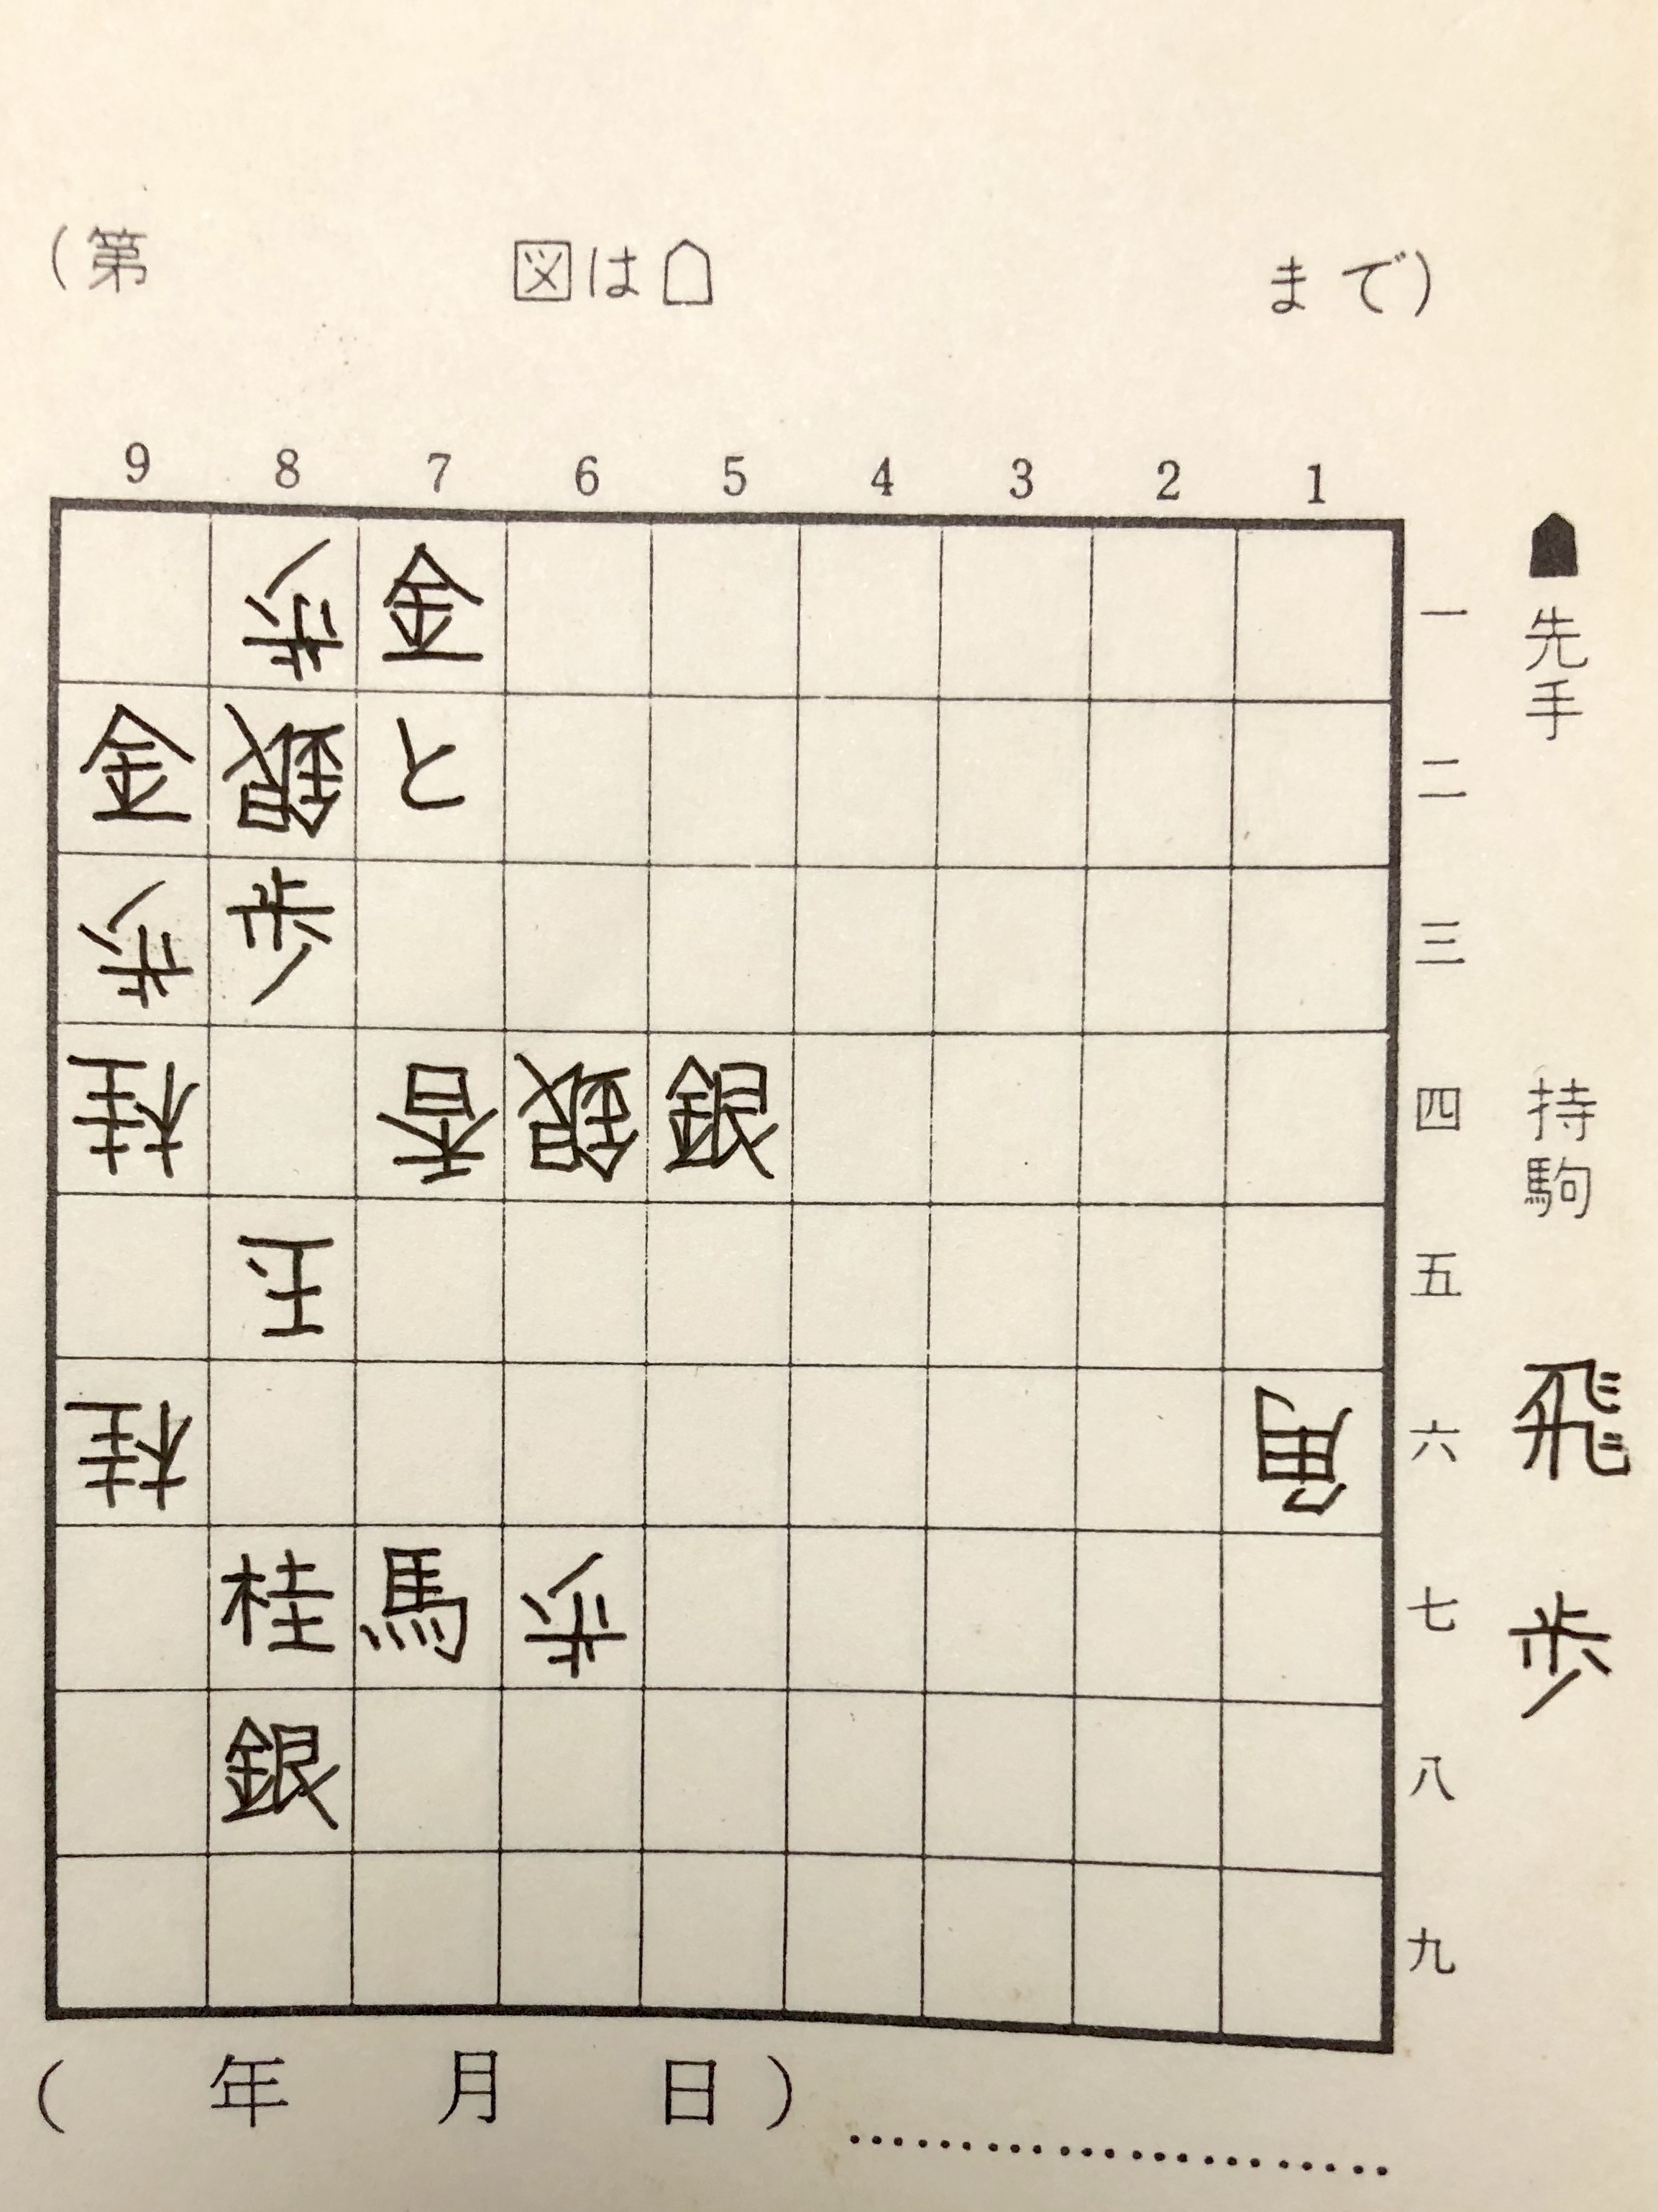 (第 図は☖ まで)
9 8 7 6 5 4 3 2 1
歩 金 一
金 銀 と 二
歩 歩 三
桂 香 銀 銀 四
玉 五
桂 角 六
桂 馬 歩 七
銀 八
九
☗先手 持駒 飛 歩
( 年 月 日)